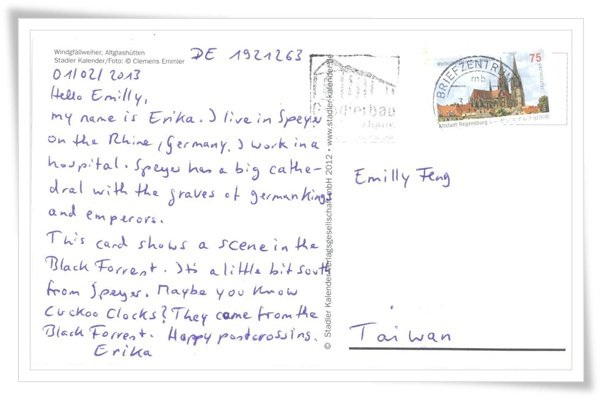 Windgfällweiher, Altglashütten
Stadler Kalender/Foto: © Clemens Emmler
DE 1921263
01/02/2013
Hello Emilly,
my name is Erika. I live in Speyer
on the Rhine, Germany. I work in a
hospital. Speyer has a big cathe-
dral with the graves of german Kings
and emperors.
This card shows a scene in the
Black Forrest. It's a little bit south
from Speyer. Maybe you know
Cuckoo Clocks? They come from the
Black Forrest. Happy postcrossing.
Erika
© Stadler Kalender Verlagsgesellschaft mbH 2012 • www.stadler-kalender.de
BRIEFZENTRUM
mb
75
Altstadt Regensburg
Emilly Feng
Taiwan